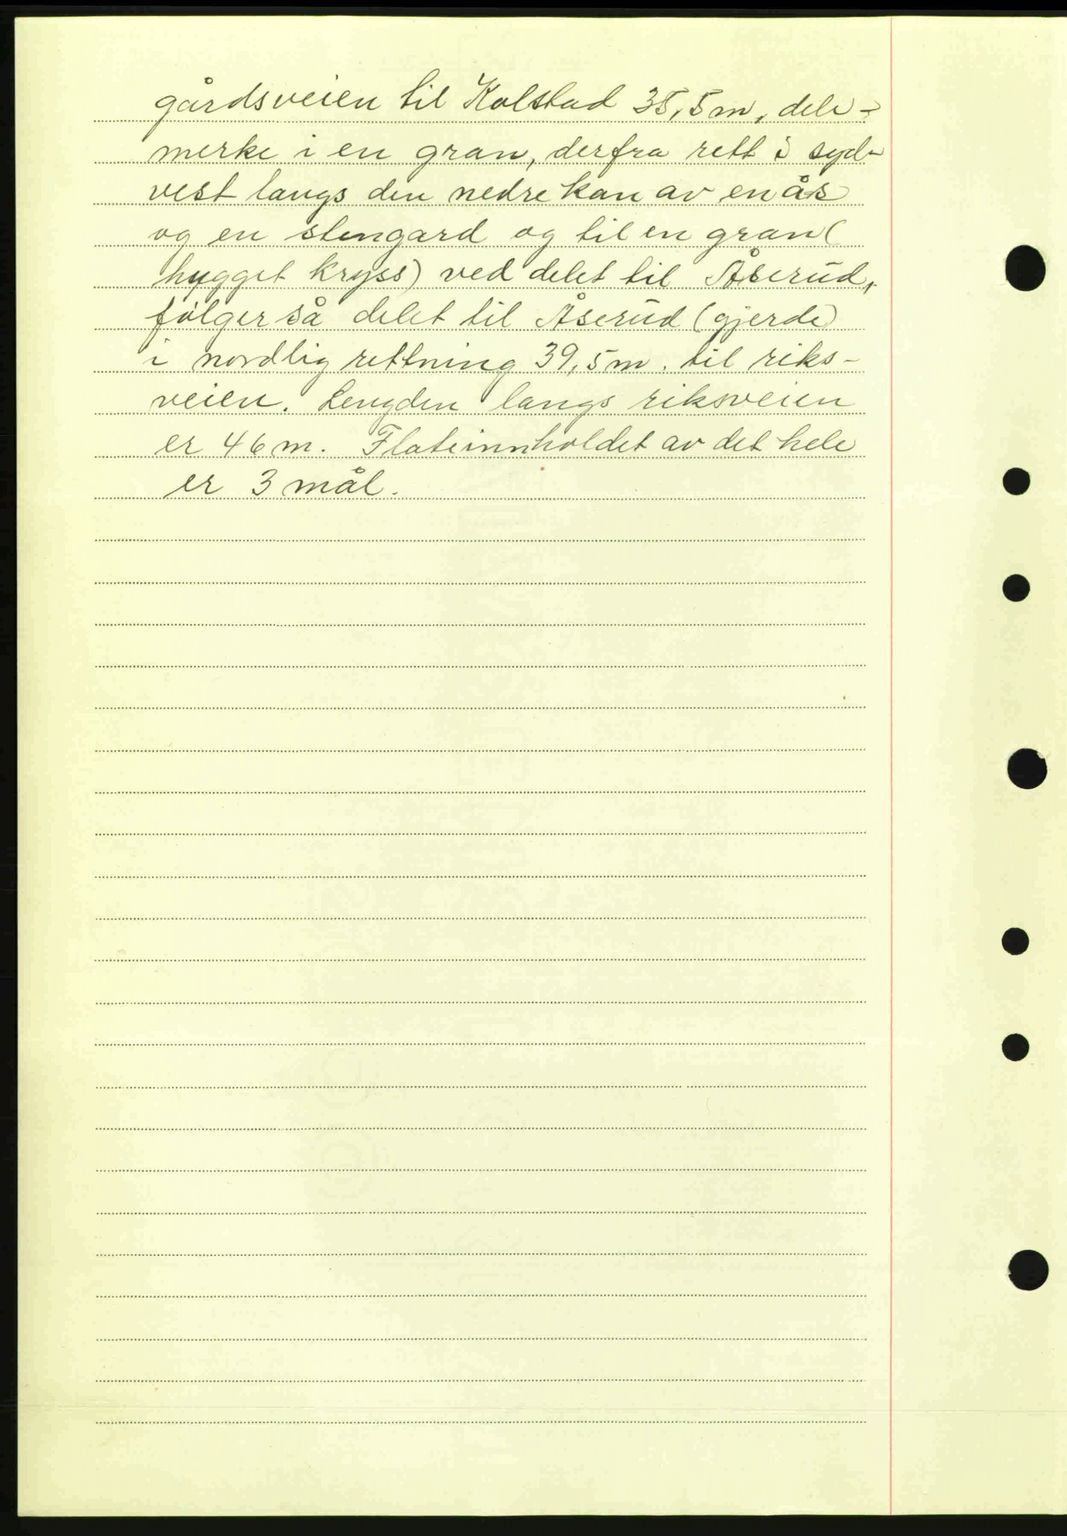 gårdsveien til Kolstad 35,5 m, dele-
merke i en gran, derfra rett i syd-
vest langs den nedre kan av en ås
og en stengard og til en gran (
hugget kryss) ved delet til Åserud,
følger så delet til Åserud (gjerde)
i nordlig rettning 39,5 m. til riks-
veien. Lengden langs riksveien
er 46 m. Flateinnholdet av det hele
er 3 mål.